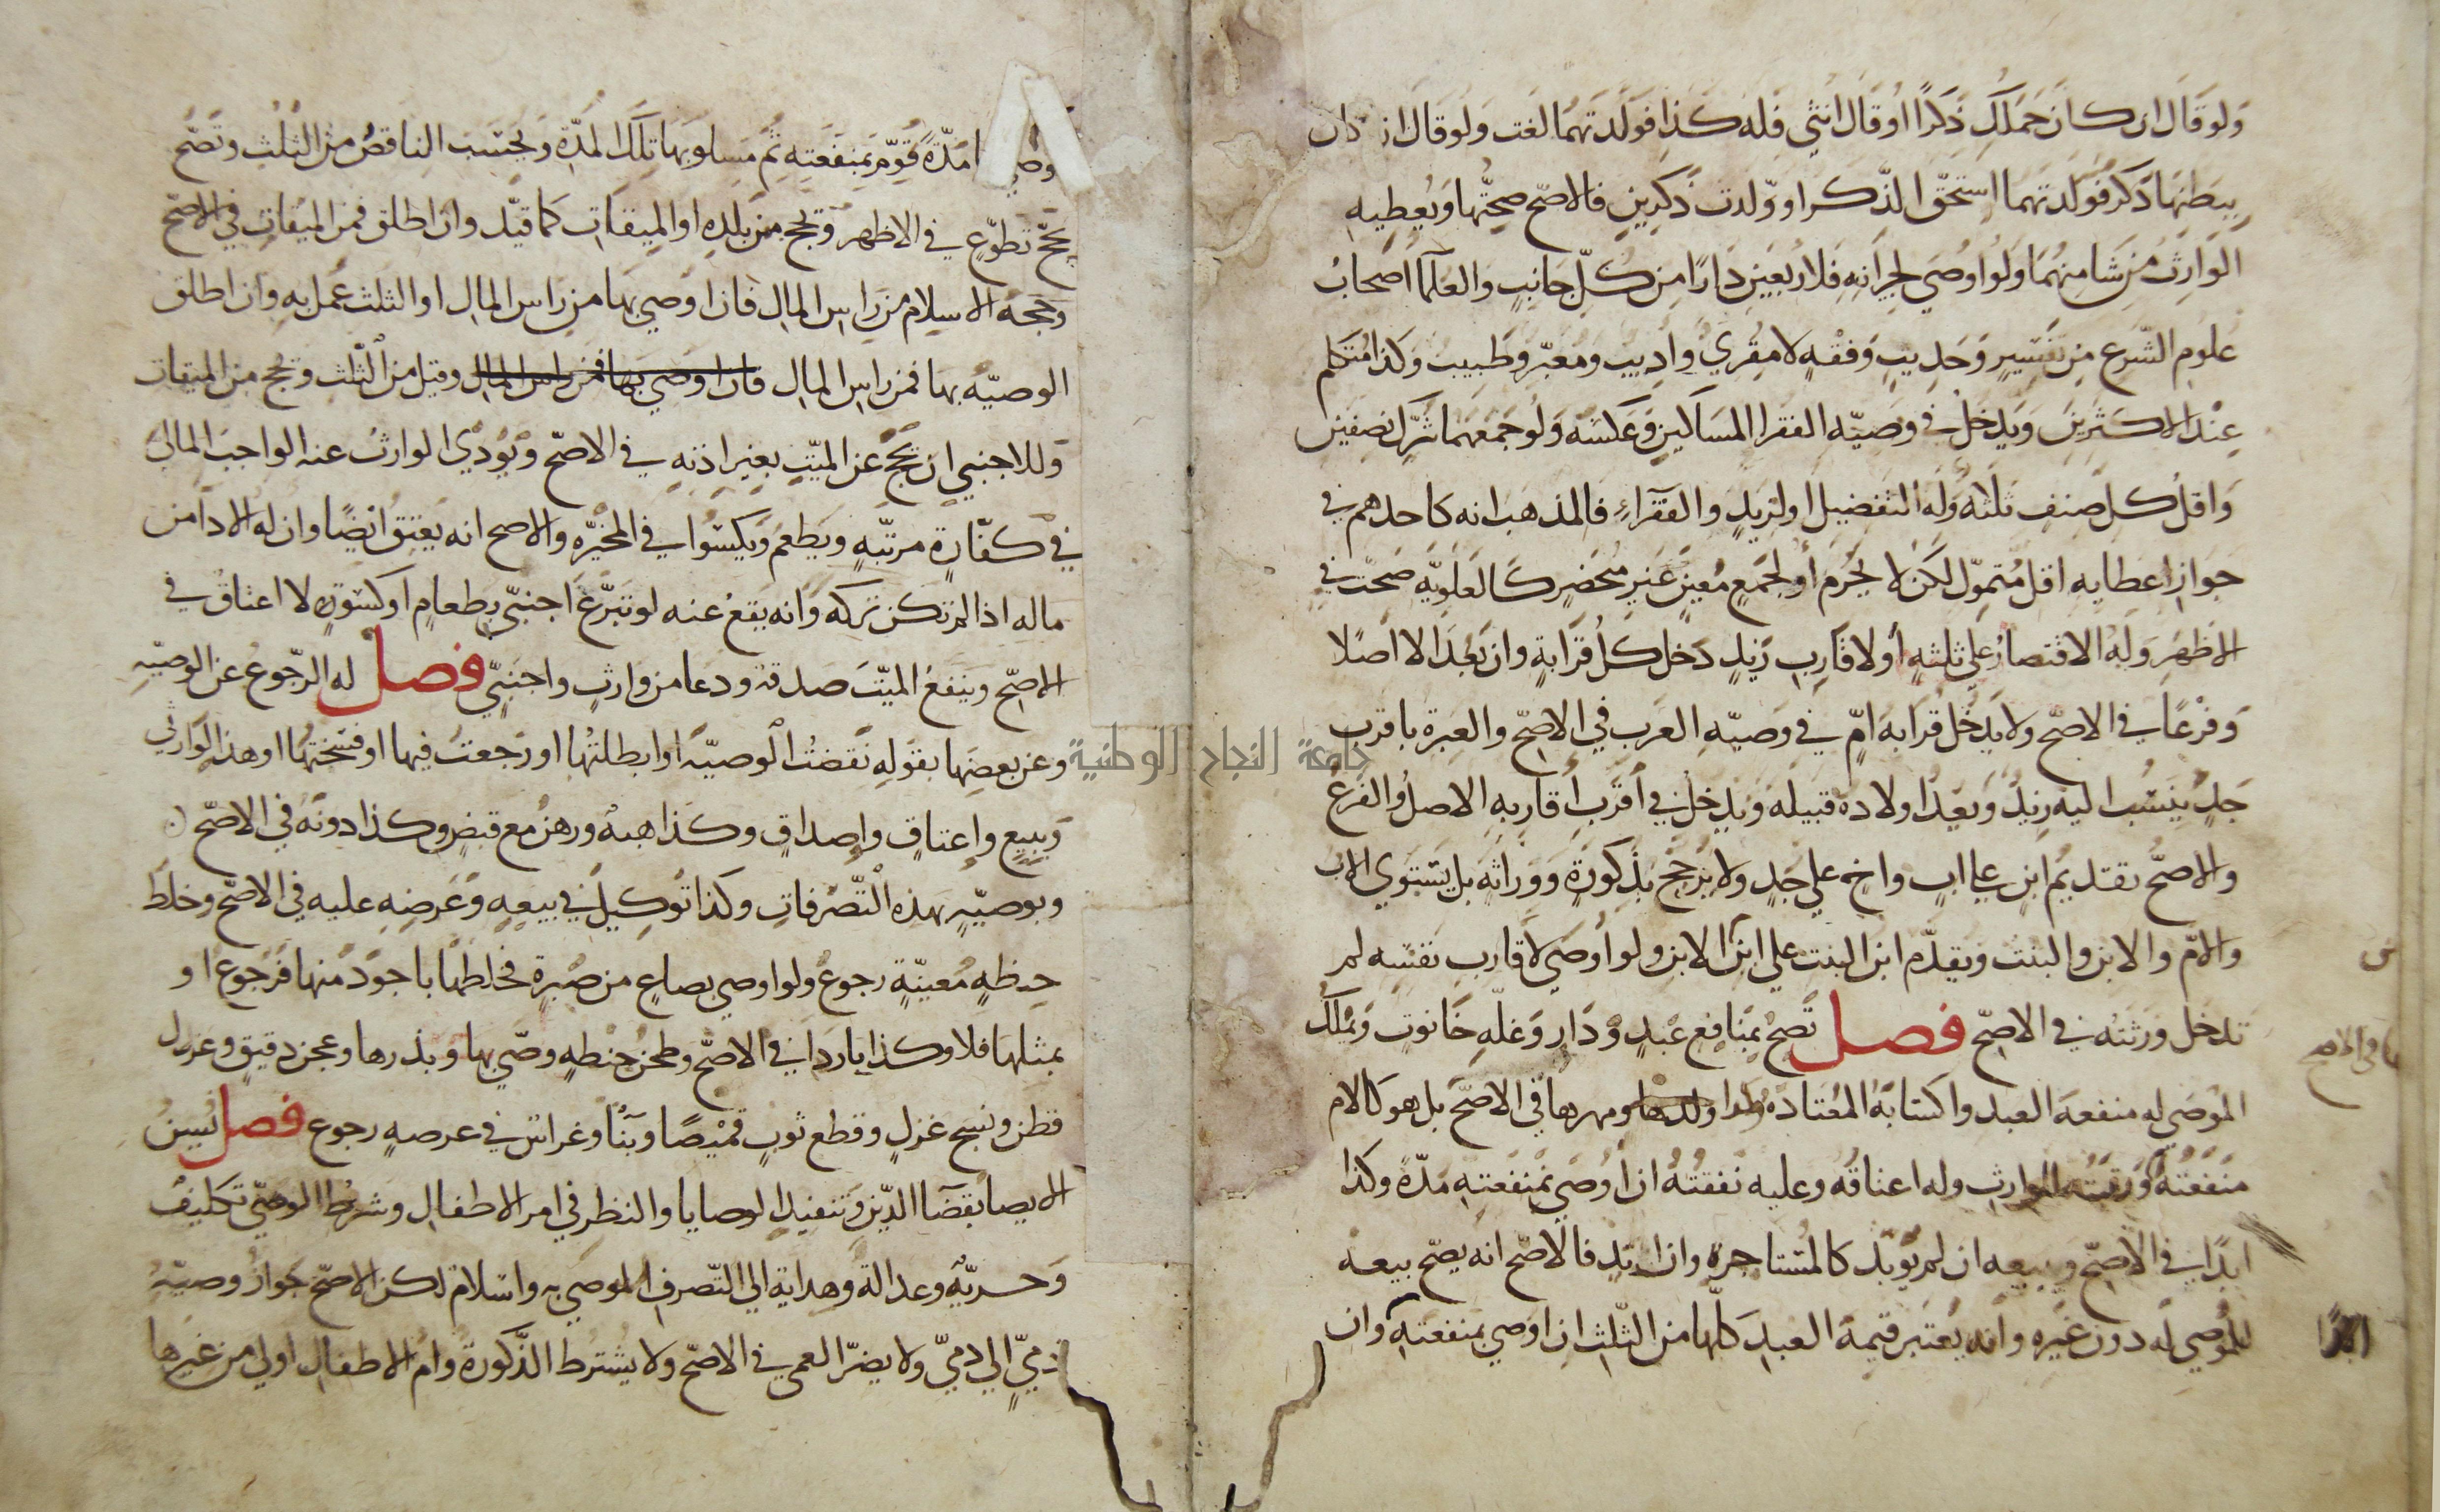 ولو قال ان كان حملك ذكرا او قال انثي فله كذا فولدتهما لغت ولو قال ان كان
ببطنها ذكر فولدتهما استحق الذكر او ولدت ذكرين فالاصح صحتها ويعطيه
الوارث من شا منهما ولو اوصي لجيرانه فلاربعين دارا من كل جانب والعلما اصحاب
علوم الشرع من تفسير وحديث وفقه لا مقري واديب ومعبر وطبيب وكذا متكلم
عند الاكثرين ويدخل في وصيه الفقرا المساكين وعكسه ولو جمعهما شرك نصفين
واقل كل صنف ثلثه وله التفضيل او لزيد والفقراء فالمذهب انه كاحدهم في
جواز اعطايه اقل متمول لكن لا يحرم او لجمع معين غير منحضر كالعلويه صحت في
الاظهر وله الاقتصار علي ثلثه او لاقارب زيد دخل كل قرابة وان بعد الا اصلا
وفرعا في الاصح ولا يدخل قرابه ام في وصيه العرب في الاصح والعبرة باقرب
جد ينسب اليه زيد وبعد اولاده قبيله ويدخل في اقرب اقاربه الاصل والفرع
والاصح تقديم ابن علي اب واخ علي جد ولا يرجح بذكورة ووراثه بل يستوي الاب
والام والابن والبنت ويقدم ابن البنت علي ابن الابن ولو اوصي لاقارب نفسه لم
تدخل ورثته في الاصح فصل تصح بمنافع عبد ودار وغله حانوت ويملك
الموصي له منفعه العبد واكسابه المعتادة ولدها ومهرها في الاصح بل هو كالام
منفعته ورقبته للوارث وله اعتاقه وعليه نفقته ان اوصي بمنفعته مدة وكذا
ابدا في الاصح وبيعه ان لم يوبد كالمستاجرة وان ابد فالاصح انه يصح بيعه
للموصي له دون غيره وانه يعتبر قيمة العبد كلها من الثلث ان اوصي بمنفعته وان
ما في الاصح
ابدا
مدة قوم بمنفعته ثم مسلوبها تلك المدة ويحتسب الناقص من الثلث وتصح
بحج تطوع في الاظهر ويحج من بلده او الميقات كما قيد وان اطلق فمن الميقات في الاصح
وحجه الاسلام من راس المال فان اوصي بها من راس المال او الثلث عمل به وان اطلق
الوصيه بها فمن راس المال فان اوصي بها فمن راس المال وقيل من الثلث ويحج من الميقات
وللاجنبي ان يحج عن الميت بغير اذنه في الاصح ويودي الوارث عنه الواجب المالي
في كفارة مرتبه ويطعم ويكسوا في المخيره والاصح انه يعتق ايضا وان له الادا من
ماله اذا لم تكن تركه وانه يقع عنه لو تبرع اجنبي بطعام او كسوة لا اعتاق في
الاصح وينفع الميت صدقة ودعا من وارث واجنبي فصل له الرجوع عن الوصيه
وعن بعضها بقوله نقضت الوصيه او ابطلتها او رجعت فيها او فسختها او هذا لوارثي
وببيع واعتاق واصداق وكذا هبه ورهن مع قبض وكذا دونه في الاصح
وبوصيه بهذه التصرفات وكذا توكيل في بيعه وعرضه عليه في الاصح وخلط
حنطه معينة رجوع ولو اوصي بصاع من صبرة فخلطها باجود منها فرجوع او
بمثلها فلا وكذا باردا في الاصح وطحن حنطه وصي بها وبذرها وعجن دقيق وغزل
قطن ونسج غزل وقطع ثوب قميصا وبنا وغراس في عرصه رجوع فصل يسن
الايصا بقضا الدين وتنفيذ الوصايا والنظر في امر الاطفال وشرط الوصي تكليف
وحرية وعدالة وهداية الي التصرف الموصي به واسلام لكن الاصح جواز وصية
ذمي الي ذمي ولا يضر العمي في الاصح ولا يشترط الذكورة وام الاطفال اولي من غيرها
جامعة النجاح الوطنية